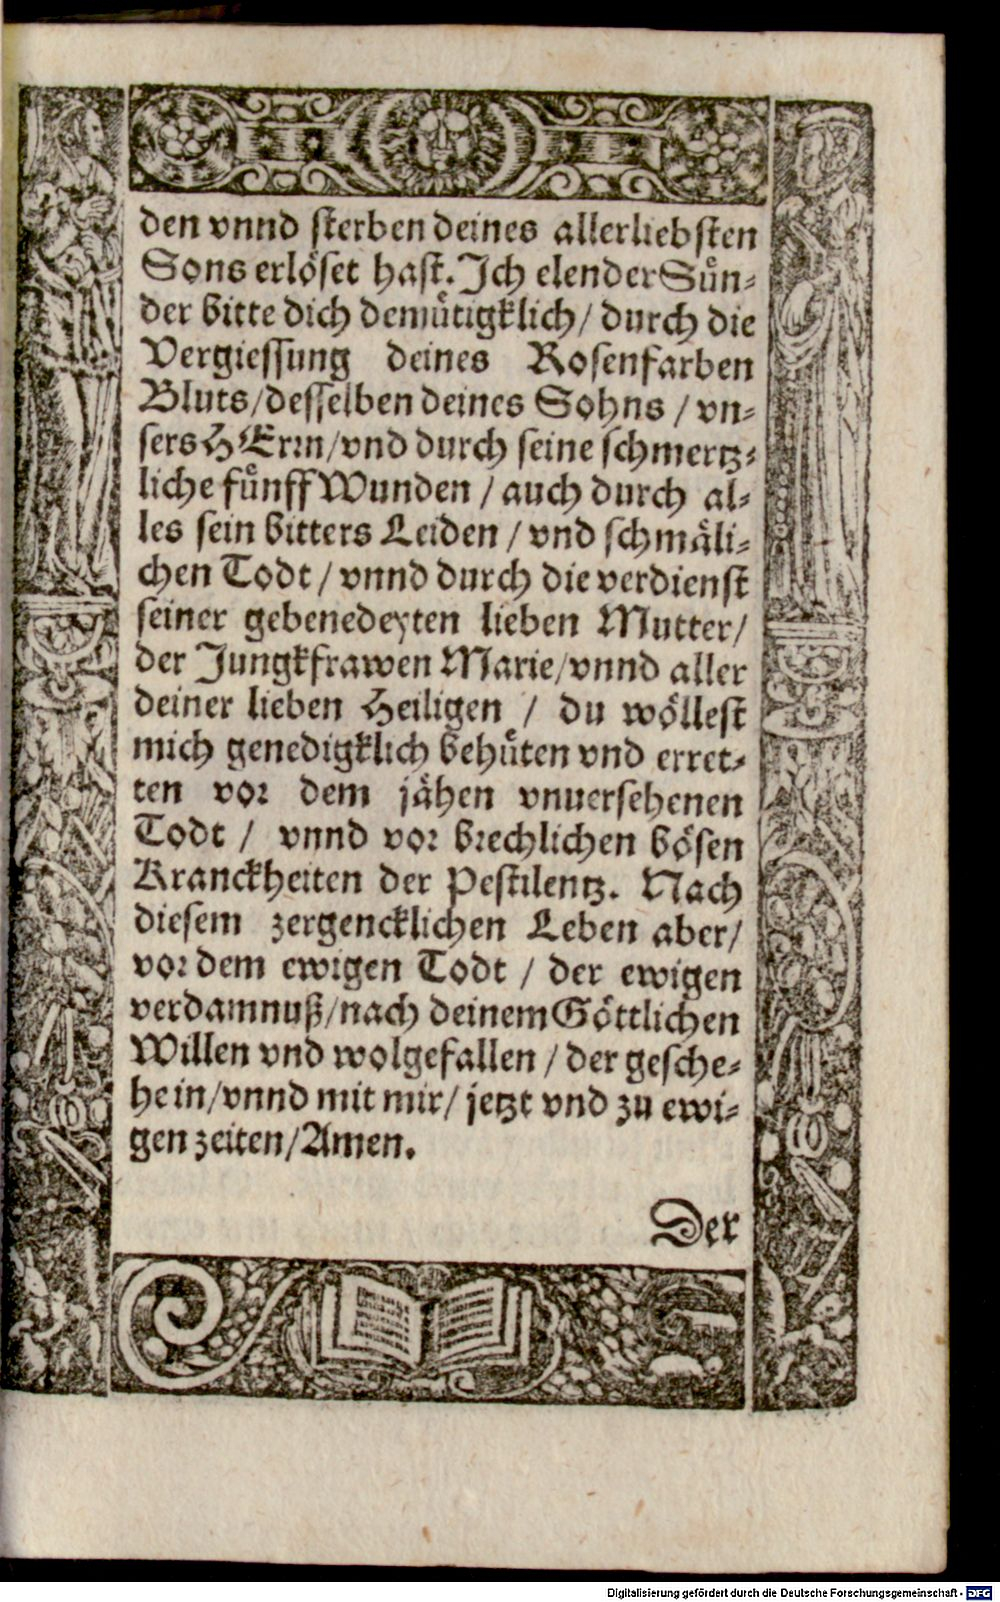 den vnnd sterben deines allerliebsten
Sons erlöset hast. Ich elender Sün-
der bitte dich demütigklich/ durch die
Vergiessung deines Rosenfarben
Bluts/desselben deines Sohns / vn-
sers HErrn/vnd durch seine schmertz-
liche fünff Wunden / auch durch al-
les sein bitters Leiden / vnd schmäli-
chen Todt / vnnd durch die verdienst
seiner gebenedeyten lieben Mutter/
der Jungkfrawen Marie/vnnd aller
deiner lieben Heiligen / du wöllest
mich genedigklich behüten vnd erret-
ten vor dem jähen vnuersehenen
Todt / vnnd vor brechlichen bösen
Kranckheiten der Pestilentz. Nach
diesem zergencklichen Leben aber/
vor dem ewigen Todt / der ewigen
verdamnuß/nach deinem Göttlichen
Willen vnd wolgefallen / der gesche-
he in/vnnd mit mir/ jetzt vnd zu ewi-
gen zeiten/Amen.
Der
Digitalisierung gefördert durch die Deutsche Forschungsgemeinschaft - DFG